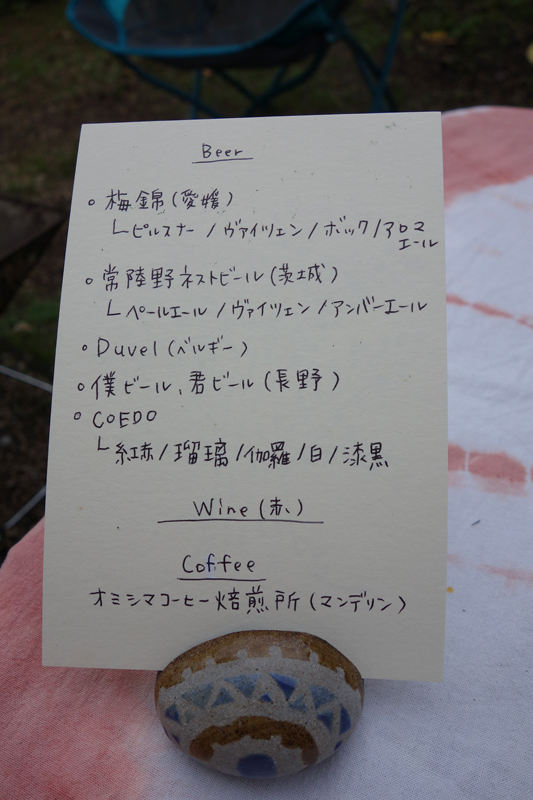 Beer
○ 梅錦(愛媛)
└ピルスナー/ヴァイツェン/ボック/アロマエール
○ 常陸野ネストビール(茨城)
└ペールエール/ヴァイツェン/アンバーエール
○ Duvel(ベルギー)
○ 僕ビール、君ビール(長野)
○ COEDO
└紅赤/瑠璃/伽羅/白/漆黒
Wine(赤)
Coffee
オミシマコーヒー焙煎所(マンデリン)